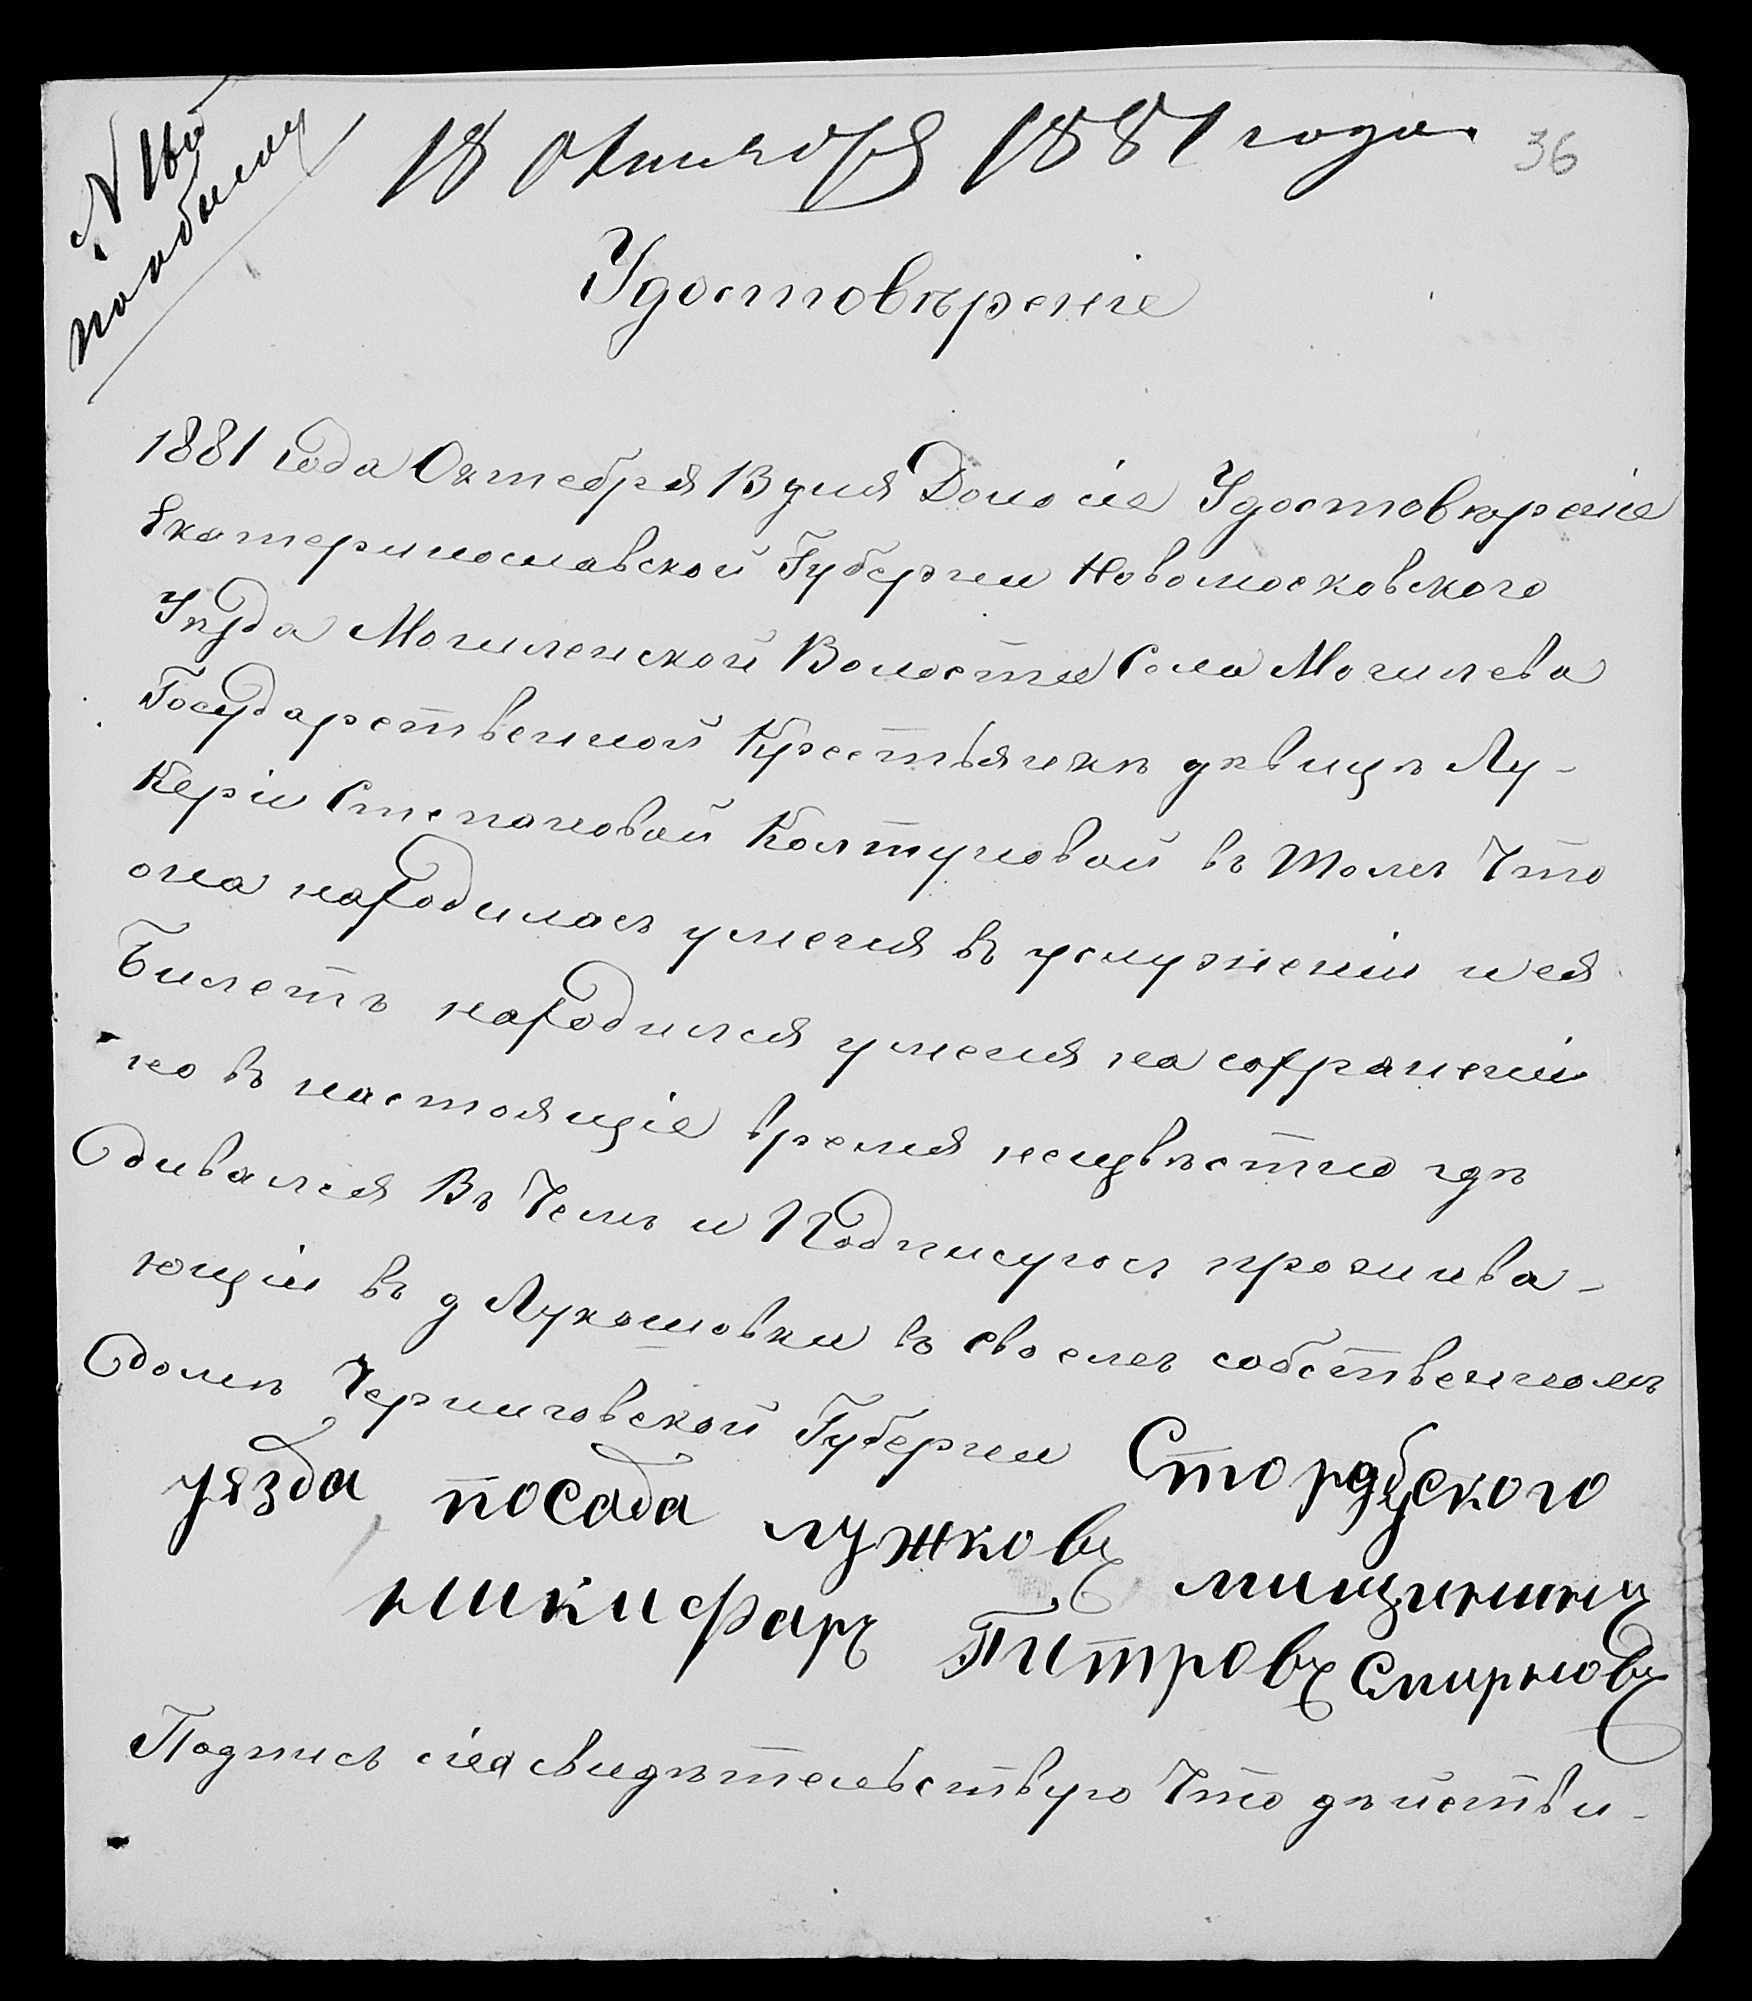 N 1й
по обыску
18 Октября 1881 года
36
Удостовѣреніе
1881 года Октебря 13 дня Дано сіе Удостовѣреніе
Екатеринославской Губернии Новомосковского
Уѣзда Могиленской Волости Села Могилева
Государственной Крестьянкѣ дѣвицѣ Лу-
Керіи Степановой Колтуновой въ томъ Что
она находиласъ уменя въ услуженіи и ея
Билетъ находился уменя на сохраненіи
но въ настоящіе время неизвѣстно гдѣ
дивался Въ Чемъ и Подписуюсъ прожива-
ющій въ д Лукашовки въ своемъ собственномъ
домѣ Черниговской Губернии Стородубского
уязда посада лужковъ мищининъ
никифаръ Питровъ Смирновъ
Подпись сія свидѣтельствую Что дѣйстви-